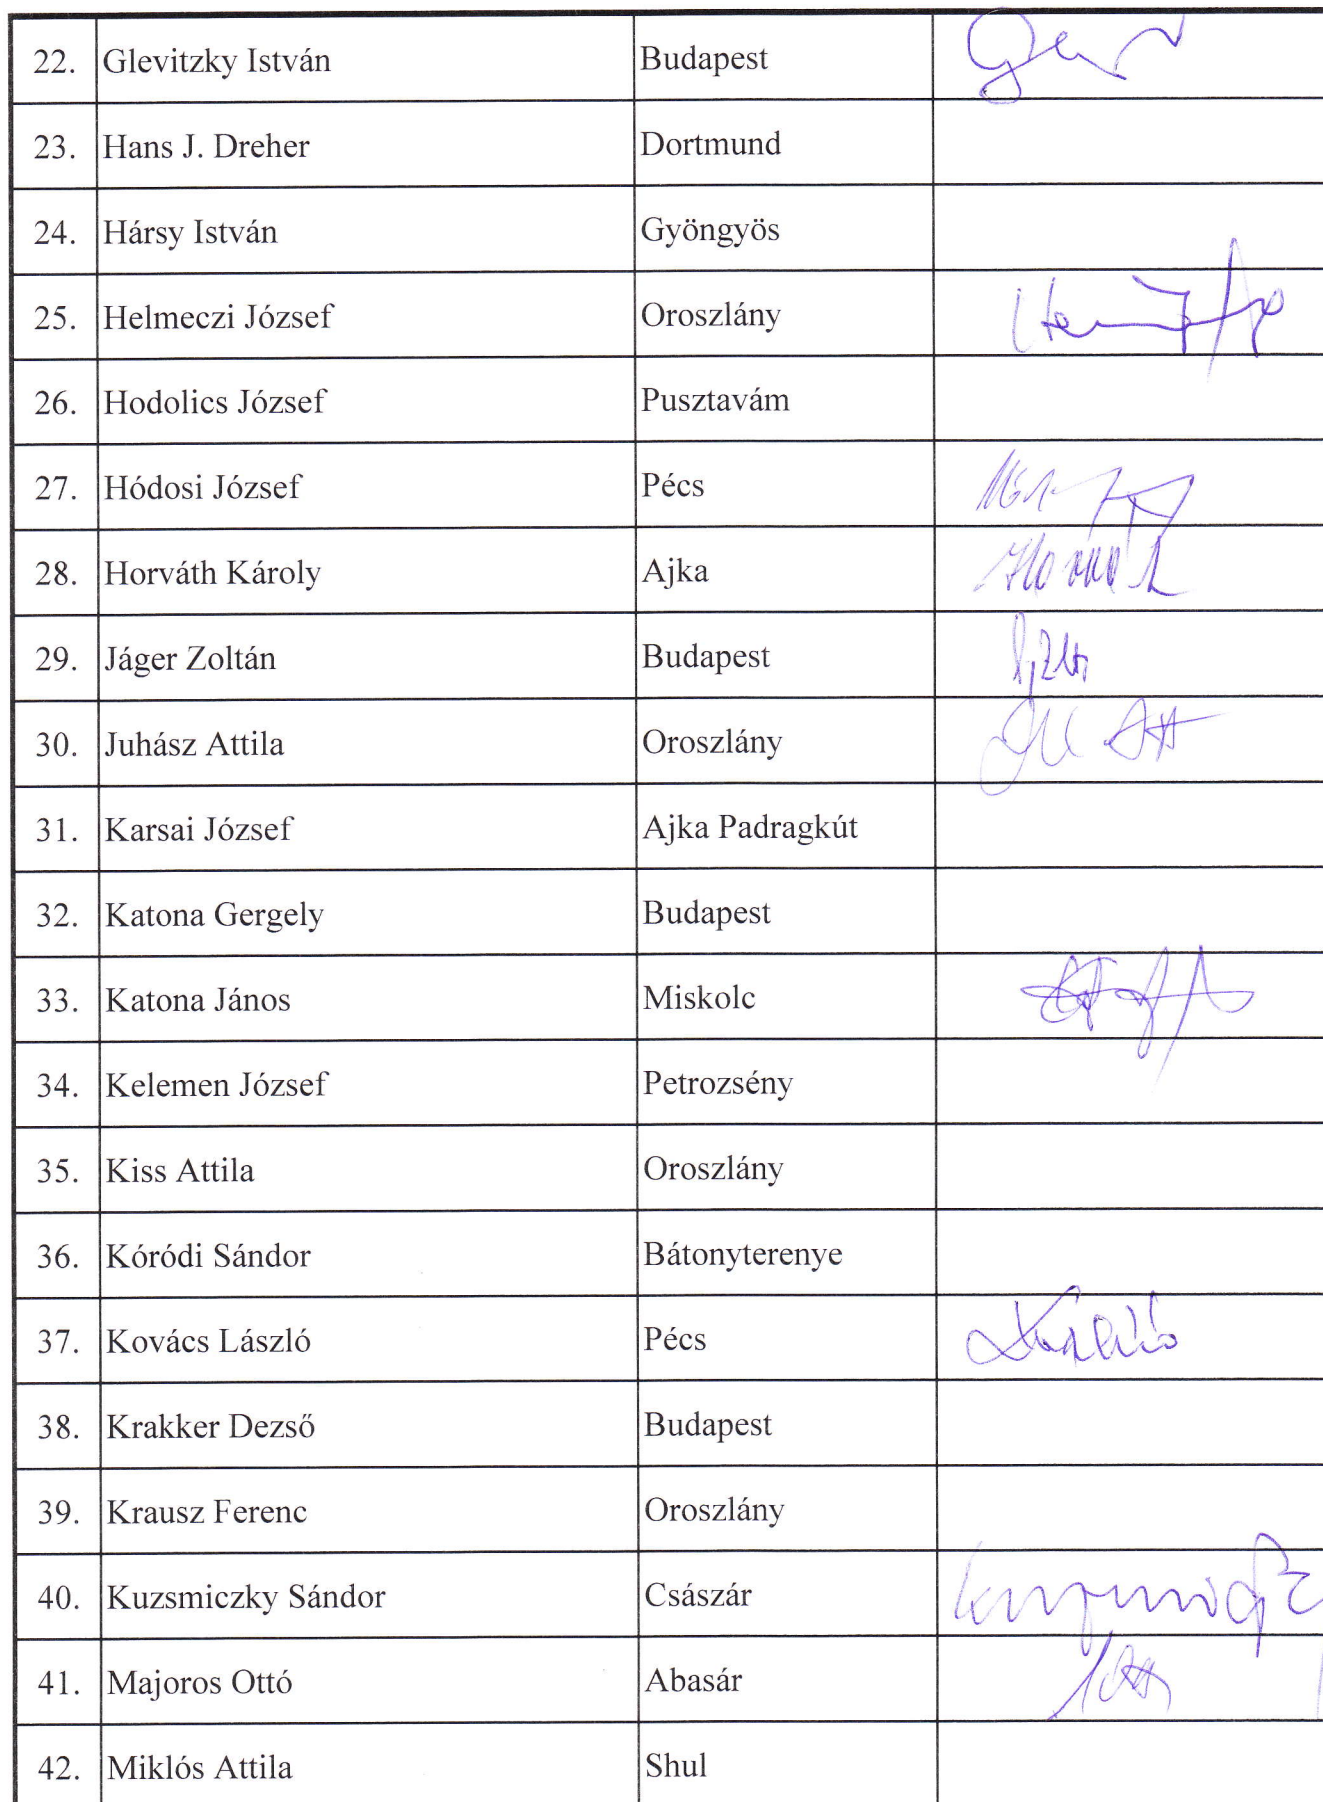 22. Glevitzky István Budapest
23. Hans J. Dreher Dortmund
24. Hársy István Gyöngyös
25. Helmeczi József Oroszlány
26. Hodolics József Pusztavám
27. Hódosi József Pécs
28. Horváth Károly Ajka
29. Jáger Zoltán Budapest
30. Juhász Attila Oroszlány
31. Karsai József Ajka Padragkút
32. Katona Gergely Budapest
33. Katona János Miskolc
34. Kelemen József Petrozsény
35. Kiss Attila Oroszlány
36. Kóródi Sándor Bátonyterenye
37. Kovács László Pécs
38. Krakker Dezső Budapest
39. Krausz Ferenc Oroszlány
40. Kuzsmiczky Sándor Császár
41. Majoros Ottó Abasár
42. Miklós Attila Shul